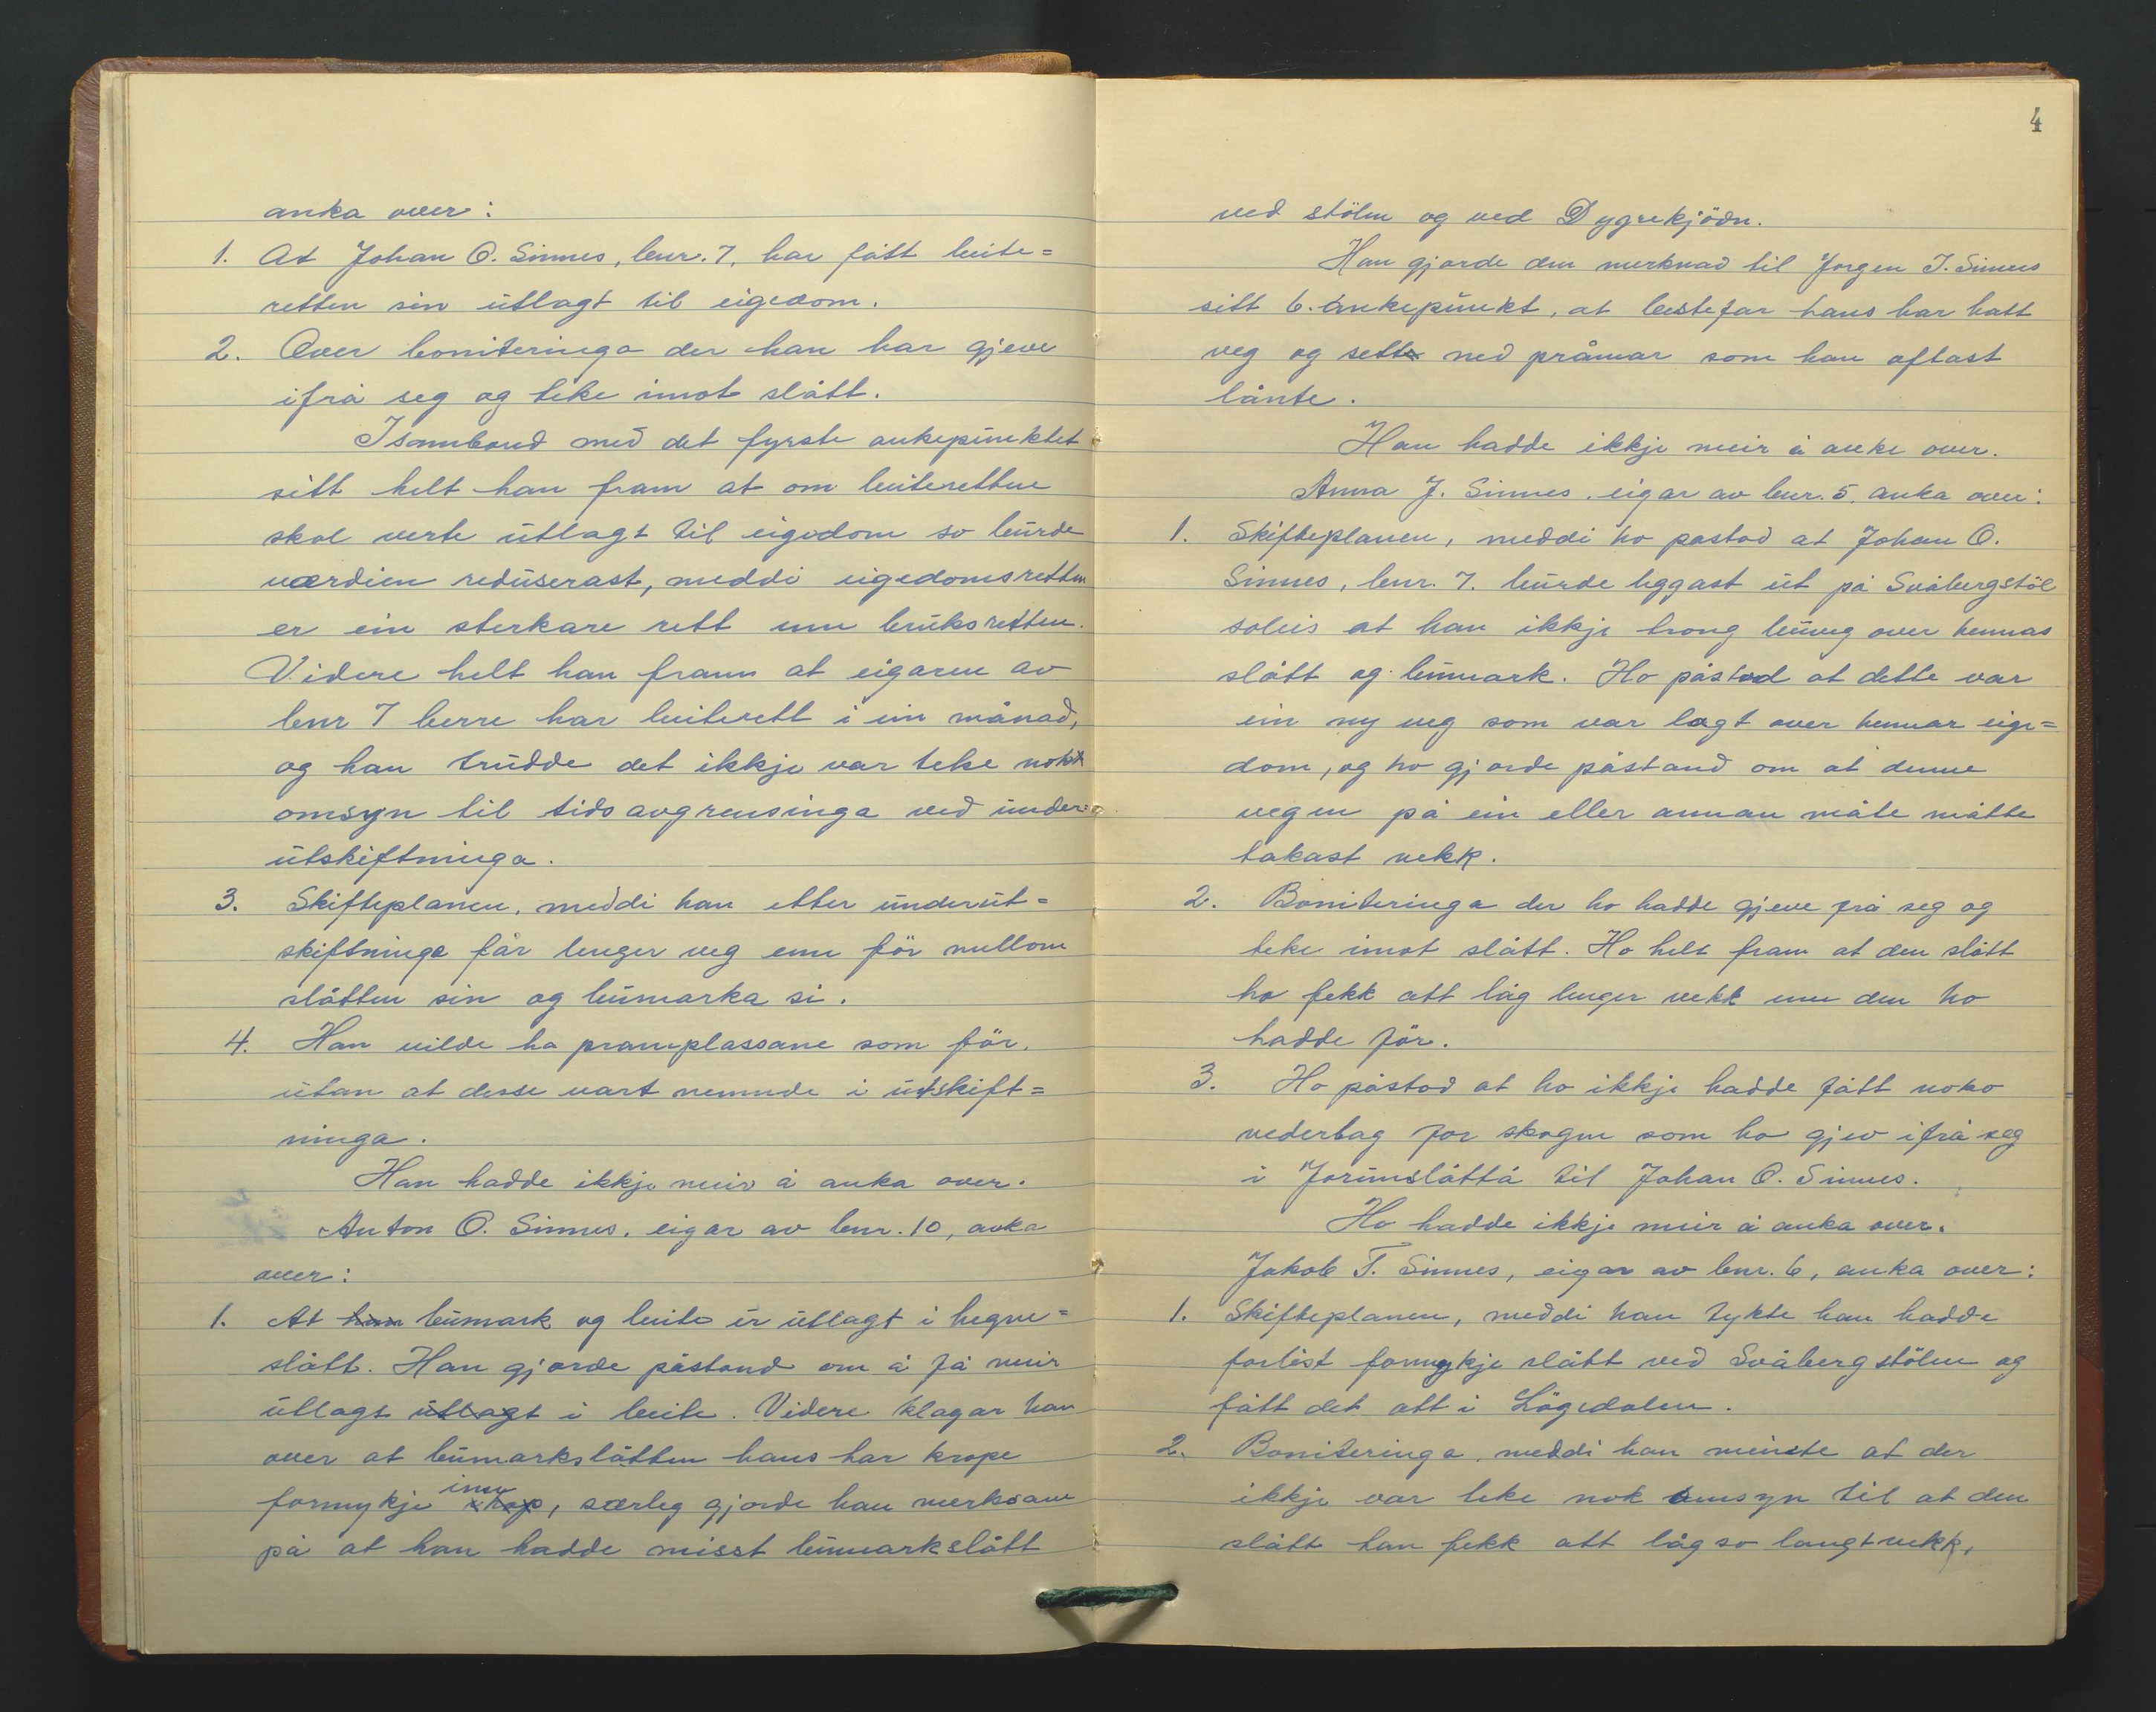 anka over:
1. At Johan O. Sinnes, bnr. 7, har fått beite=
retten sin utlagt til eigedom.
2. Over boniteringa der han har gjeve
ifrå seg og teke imot slått.
I samband med det fyrste ankepunktet
sitt helt han fram at om beiteretten
skal verte utlagt til eigedom so burde
værdien reduserast, meddi eigedomsretten
er ein sterkare rett enn bruksretten.
Videre helt han fram at eigaren av
bnr 7 berre har beiterett i ein månad,
og han trudde det ikkje var teke nokk
omsyn til tidsavgrensinga ved under=
utskiftninga.
3. Skifteplanen, meddi han etter underut=
skiftninga får lenger veg enn för mellom
slåtten sin og bumarka si.
4. Han vilde ha pramplassane som för,
utan at desse vart nemnde i utskift=
ninga.
Han hadde ikkje meir å anka over.
Anton O. Sinnes, eigar av bnr. 10, anka
over:
1. At bumark og beite er utlagt i hegne=
slått. Han gjorde påstand om å få meir
utlagt utlagt i beite. Videre klagar han
over at bumarkslåtten hans har krope
formykje inn, særleg gjorde han merksam
på at han hadde misst bumarkslått
4
ved stölen og ved Dygrekjödn.
Han gjorde den merknad til Jørgen J. Sinnes
sitt 6. ankepunkt, at bestefar hans har hatt
veg og sett ned pråmar som han oftast
lånte.
Han hadde ikkje meir å anke over.
Anna J. Sinnes, eigar av bnr. 5, anka over:
1. Skifteplanen, meddi ho påstod at Johan O.
Sinnes, bnr. 7. burde leggast ut på Svåbergstöl
soleis at han ikkje trong buveg over hennas
slått og bumark. Ho påstod at dette var
ein ny veg som var lagt over hennar eige=
dom, og ho gjorde påstand om at denne
vegen på ein eller annan måte måtte
takast vekk.
2. Boniteringa der ho hadde gjeve frå seg og
teke imot slått. Ho helt fram at den slått
ho fekk att låg lenger vekk enn den ho
hadde för.
3. Ho påstod at ho ikkje hadde fått noko
vederlag for skogen som ho gjev ifrå seg
i Jorunslåttå til Johan O. Sinnes.
Ho hadde ikkje meir å anka over.
Jakob T. Sinnes, eigar av bnr. 6, anka over:
1. Skifteplanen, meddi han tykte han hadde
forlist formykje slått ved Svåbergstölen og
fått det att i Lögedalen.
2. Boniteringa, meddi han meinte at der
ikkje var teke nok omsyn til at den
slått han fekk att låg so langt vekk,